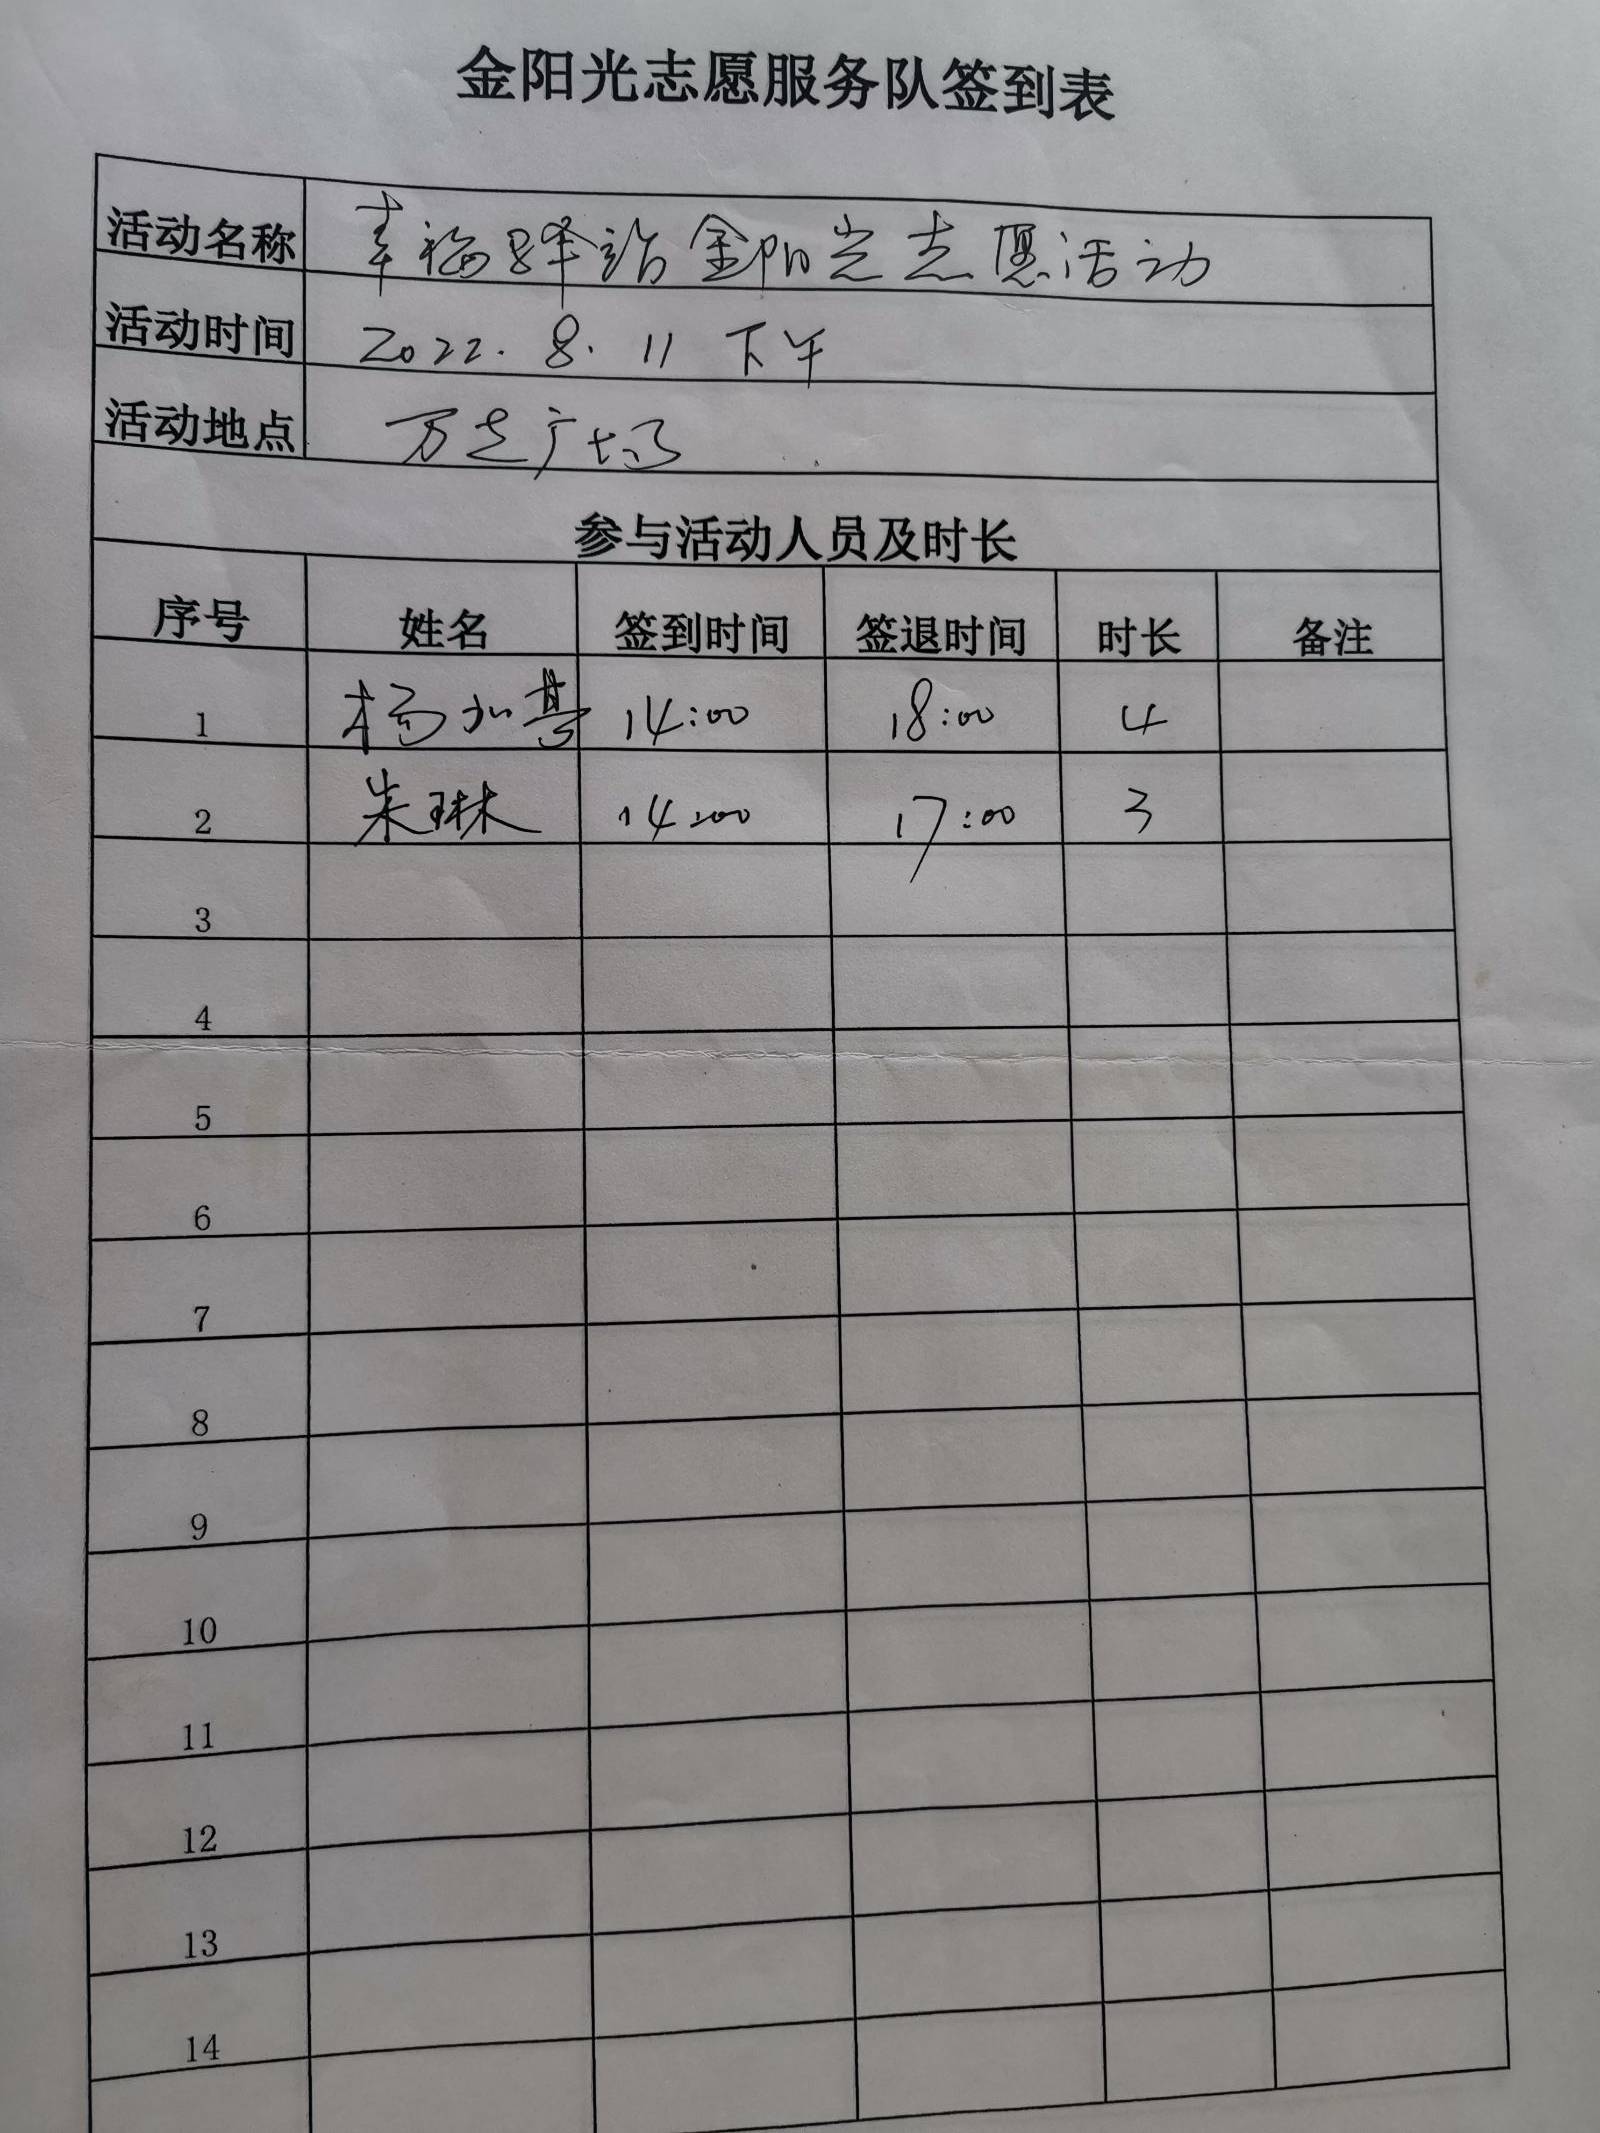 金阳光志愿服务队签到表
活动名称 幸福驿站金阳光志愿活动
活动时间 2022.8.11 下午
活动地点 万达广场
参与活动人员及时长
序号 姓名 签到时间 签退时间 时长 备注
1 杨加 14:00 18:00 4
2 朱琳 14:00 17:00 3
3
4
5
6
7
8
9
10
11
12
13
14